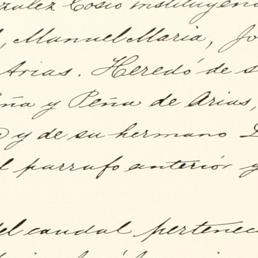 zalez Cosio instituyen
, Manuel Maria, Jo
Arias. Heredó de s
ña y Peña de Arias,
y de su hermano
l parrafo anterior y
del caudal pertenec